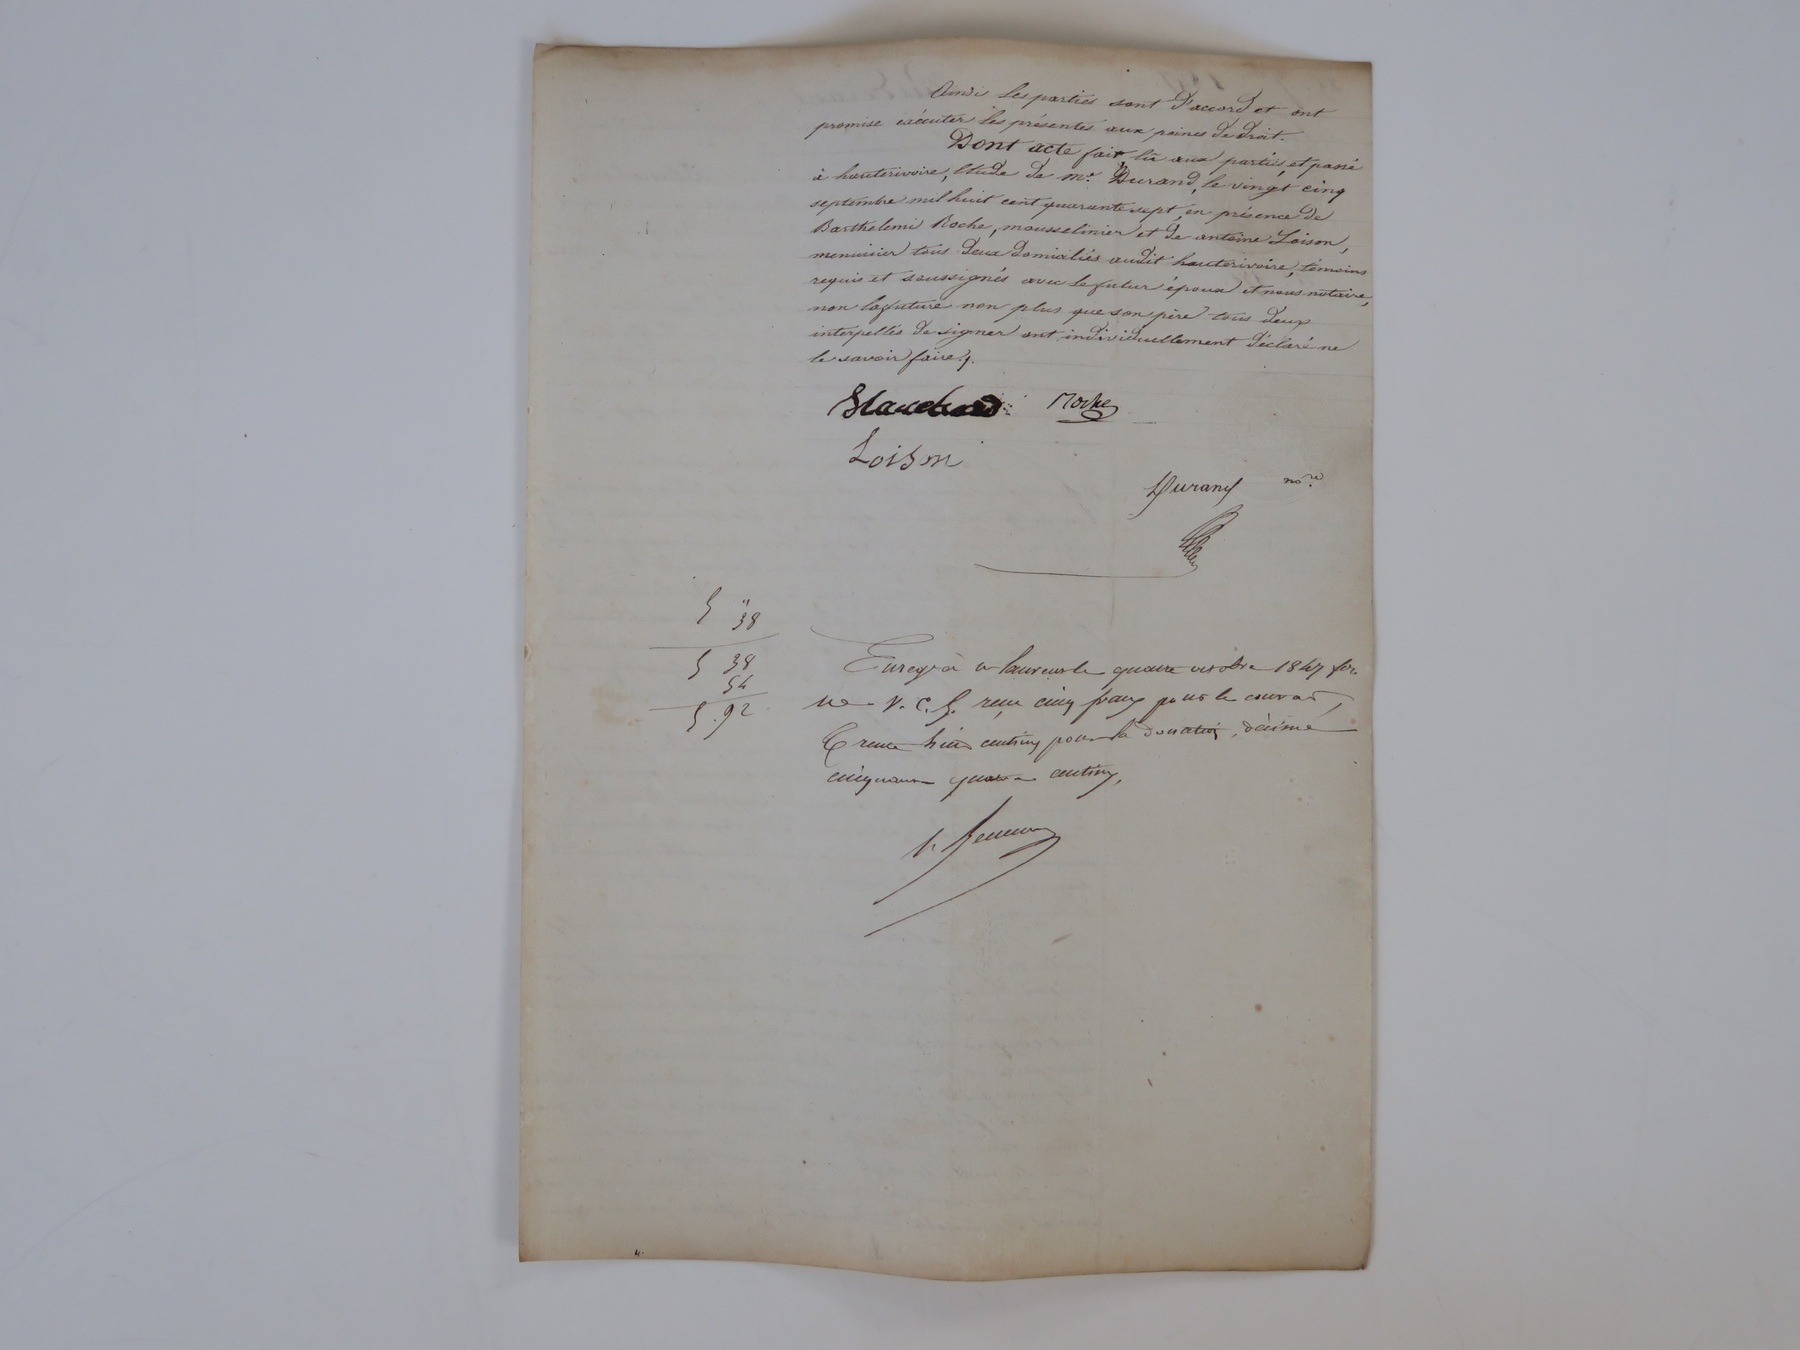 Ainsi les parties sont d'accord et ont
promise exécuter les présentes aux peines de droit.
Dont acte fait, lu aux parties, et passé
à hauterivoire, Etude de me. Durand, le vingt cinq
septembre mil huit cent quarante sept, en présence de
Barthelemi Roche, mousselinier et de antoine Loison,
menuisier tous deux domiciliés audit hauterivoire, témoins
requis et soussignés avec le futur époux et nous notaire,
non la future non plus que son père tous deux
interpellés de signer ont individuellement déclaré ne
le savoir faire.
Blanchard Roche
Loison
Durand nore
5 "
38
5 38
54
5.92
Enregé à le quatre octobre 1847 fo.
V. C. 5. reçu cinq francs pour le contrat,
Trente huit centimes pour la donation, décime
cinquante quatre centimes,
4.